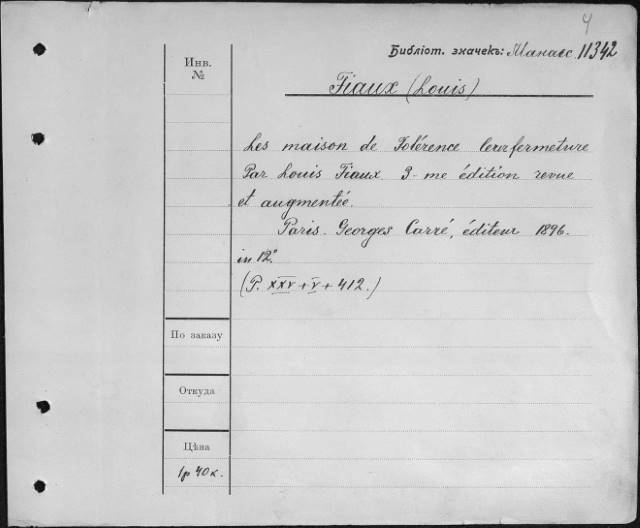 4
Библіот. значекъ: Манасс. 11342
Инв. №
Fiaux (Louis)
Les maison de Tolérence leur fermeture
Par Louis Fiaux. 3-me édition revue
et augmentée.
Paris. Georges Carré, éditeur 1896.
in 12°
(P. XXV + V + 412.)
По заказу
Откуда
Цѣна
1р 40к.